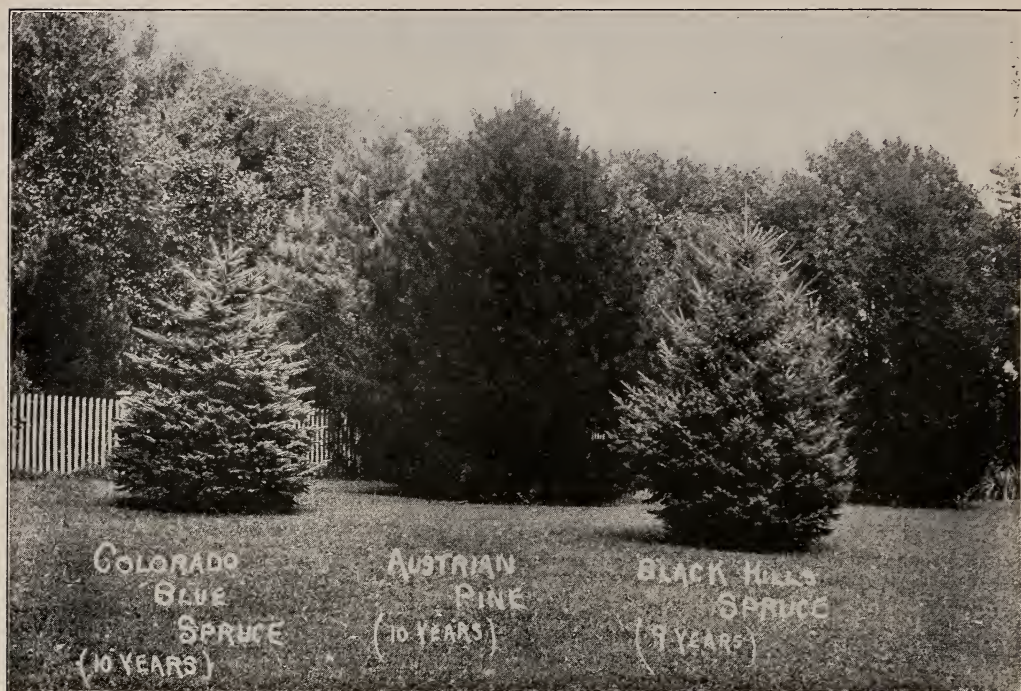 COLORADO
BLUE
SPRUCE
(10 YEARS)
AUSTRIAN
PINE
(10 YEARS)
BLACK HILLS
SPRUCE
(9 YEARS)